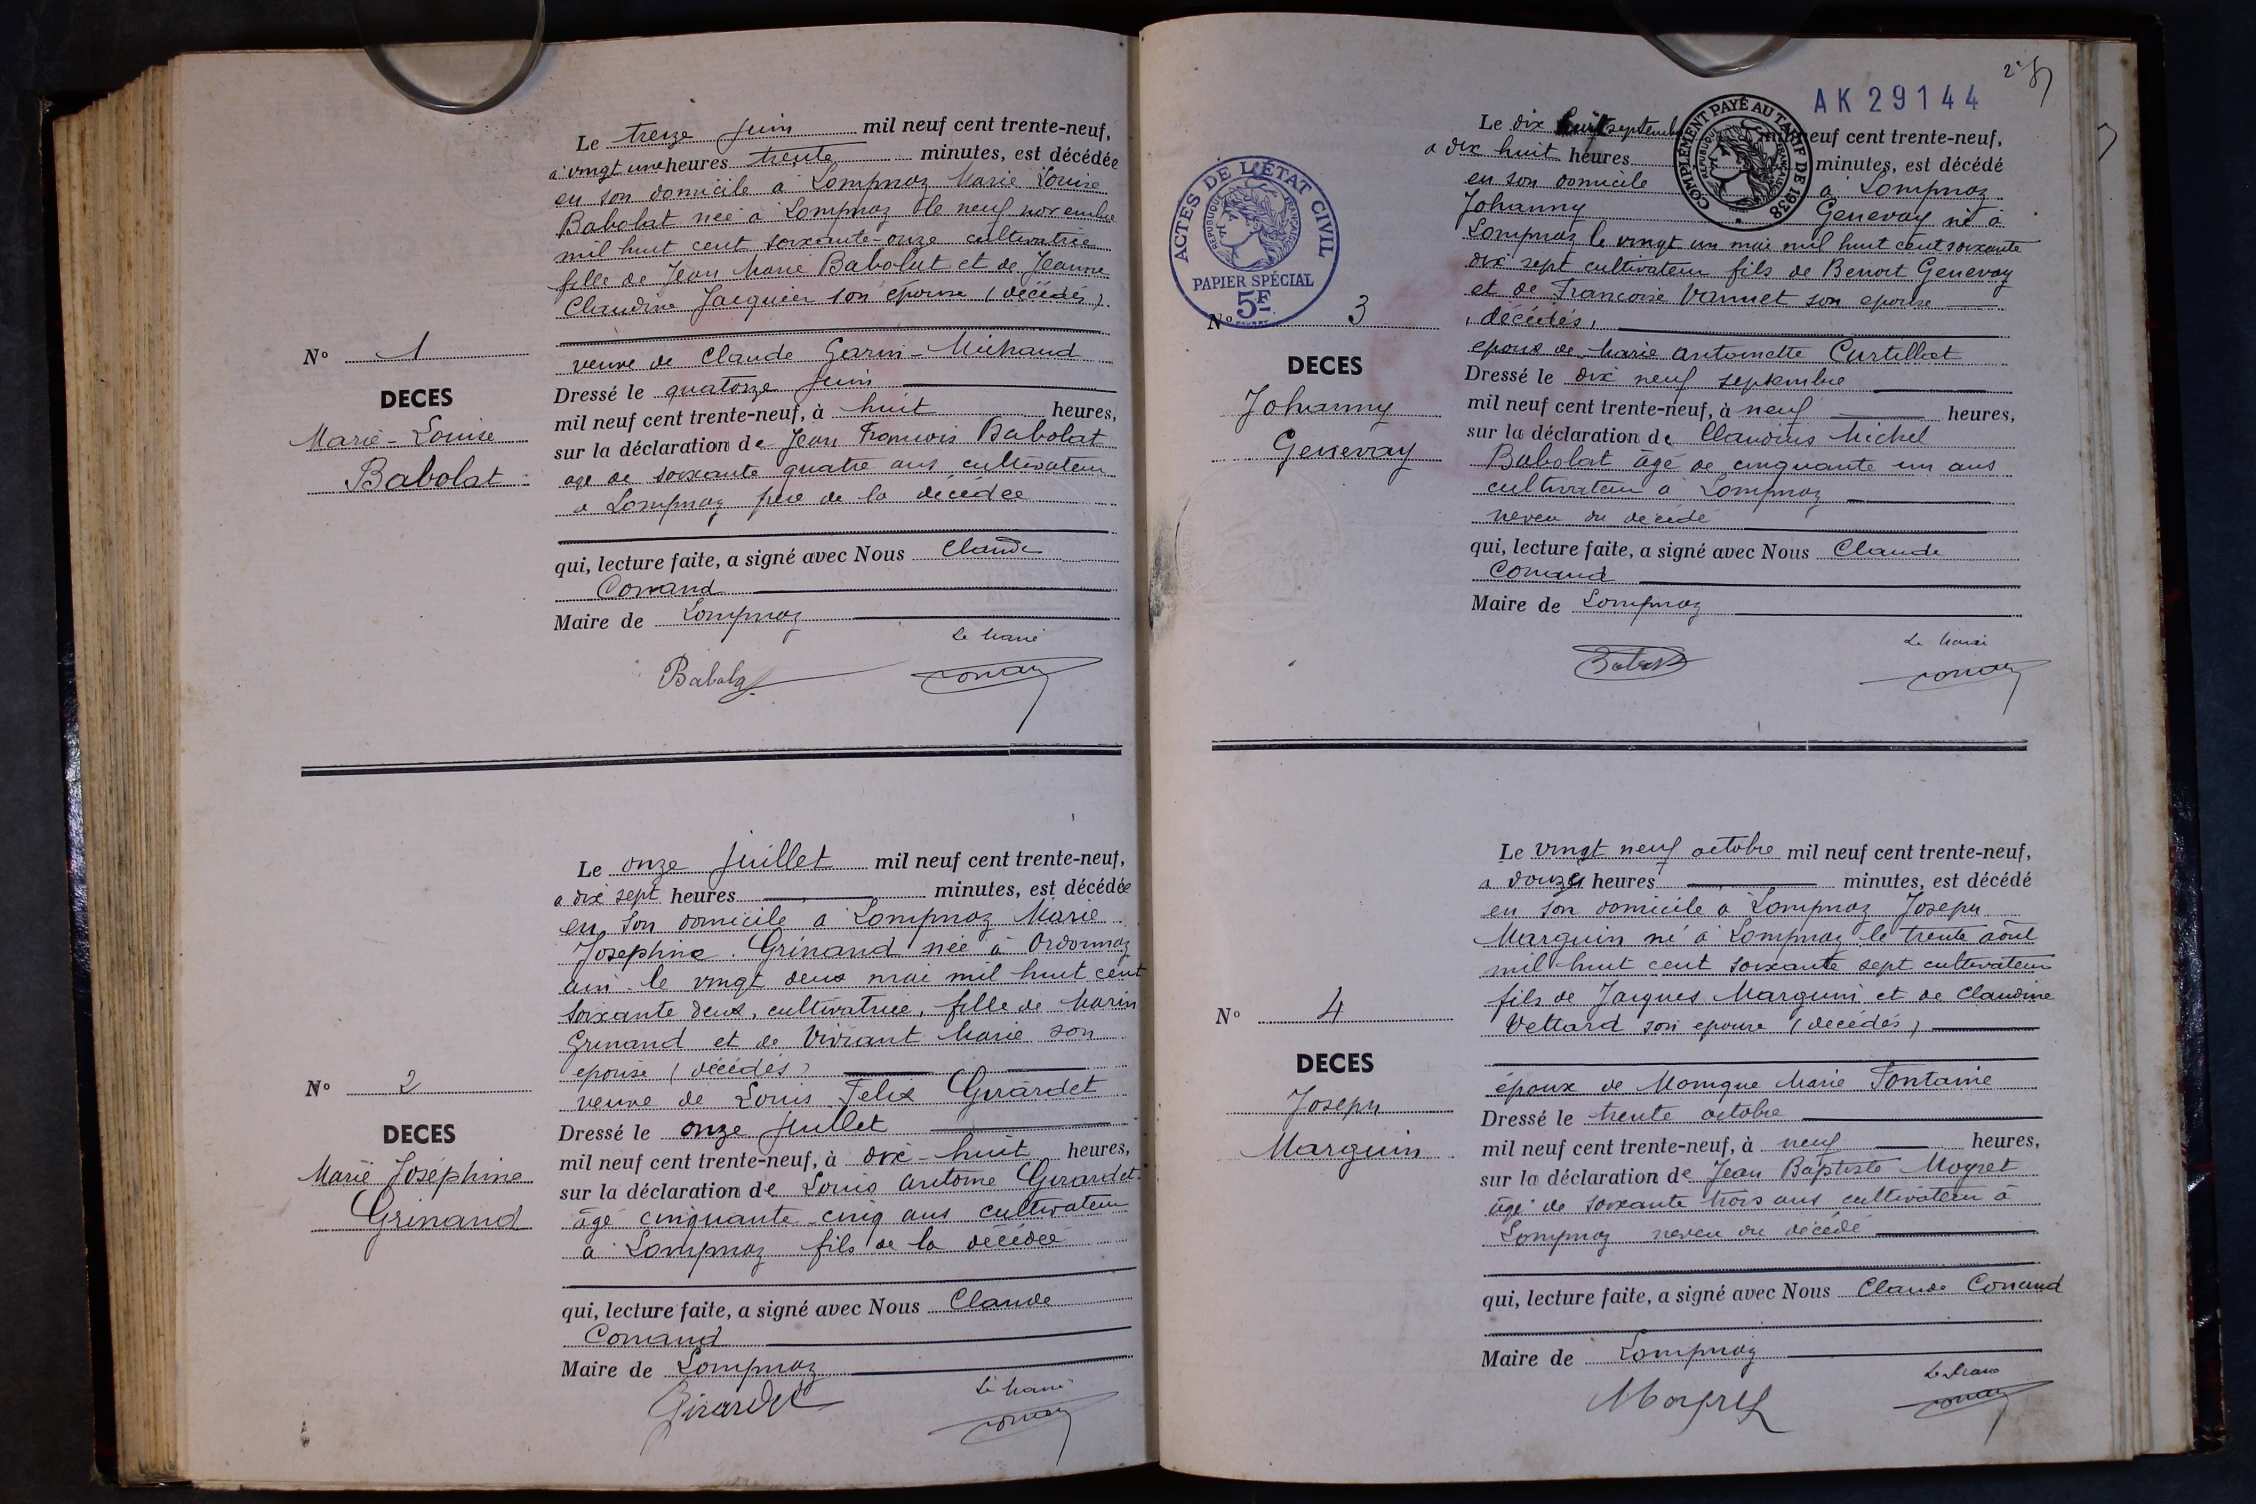 Le treize juin mil neuf cent trente-neuf,
à vingt une heures trente minutes, est décédée
en son domicile à Lompnaz Marie Louise
Babolat née à Lompnaz le neuf novembre
mil huit cent soixante-onze cultivatrice
fille de Jean Marie Babolat et de Jeanne
Claudine Jacquier son épouse (décédés)
N° 1
veuve de Claude Garin-Michaud
DECES
Marie-Louise
Babolat
Dressé le quatorze juin
mil neuf cent trente-neuf, à huit heures,
sur la déclaration de Jean François Babolat
age de soixante quatre ans cultivateur
a Lompnaz frère de la décédée
qui, lecture faite, a signé avec Nous Claude
Conand
Maire de Lompnaz
Le Maire
Babolat
Conand
Le onze juillet mil neuf cent trente-neuf,
a dix sept heures minutes, est décédée
en son domicile a Lompnaz Marie
Josephine Grinand née à Ordonnaz
ain le vingt deux mai mil huit cent
soixante deux, cultivatrice, fille de Marin
Grinand et de Vivrant Marie son
epouse (décédés)
N° 2
veuve de Louis Felix Girardet
DECES
Marie Joséphine
Grinand
Dressé le onze juillet
mil neuf cent trente-neuf, à dix-huit heures,
sur la déclaration de Louis Antoine Girardet
âgé cinquante-cinq ans cultivateur
à Lompnaz fils de la décédée
qui, lecture faite, a signé avec Nous Claude
Conand
Maire de Lompnaz
Le Maire
Girardet
Conand
AK 29144
ACTES DE L'ÉTAT CIVIL
RÉPUBLIQUE FRANÇAISE
PAPIER SPÉCIAL
5F
COMPLÉMENT PAYÉ AU TARIF DE 1938
RÉPUBLIQUE FRANÇAISE
Le dix huit septembre mil neuf cent trente-neuf,
a dix huit heures minutes, est décédé
en son domicile à Lompnaz
Johanny Genevay né à
Lompnaz le vingt un mai mil huit cent soixante
dix sept cultivateur fils de Benoit Genevay
et de Francoise Vannet son epouse
(décédés)
N° 3
epoux de Marie Antoinette Curtillat
DECES
Johanny
Genevay
Dressé le dix neuf septembre
mil neuf cent trente-neuf, à neuf heures,
sur la déclaration de Claudius Michel
Babolat âgé de cinquante un ans
cultivateur a Lompnaz
neveu du décédé
qui, lecture faite, a signé avec Nous Claude
Conand
Maire de Lompnaz
Le Maire
Babolat
Conand
Le vingt neuf octobre mil neuf cent trente-neuf,
a douze heures minutes, est décédé
en son domicile à Lompnaz Joseph
Marguin né à Lompnaz le trente août
mil huit cent soixante sept cultivateur
fils de Jacques Marguin et de Claudine
Vettard son epouse (décédés)
N° 4
DECES
Joseph
Marguin
époux de Monique Marie Fontaine
Dressé le trente octobre
mil neuf cent trente-neuf, à neuf heures,
sur la déclaration de Jean Baptiste Moyret
âgé de soixante trois ans cultivateur à
Lompnaz neveu du décédé
qui, lecture faite, a signé avec Nous Claude Conand
Maire de Lompnaz
Le Maire
Moyret
Conand